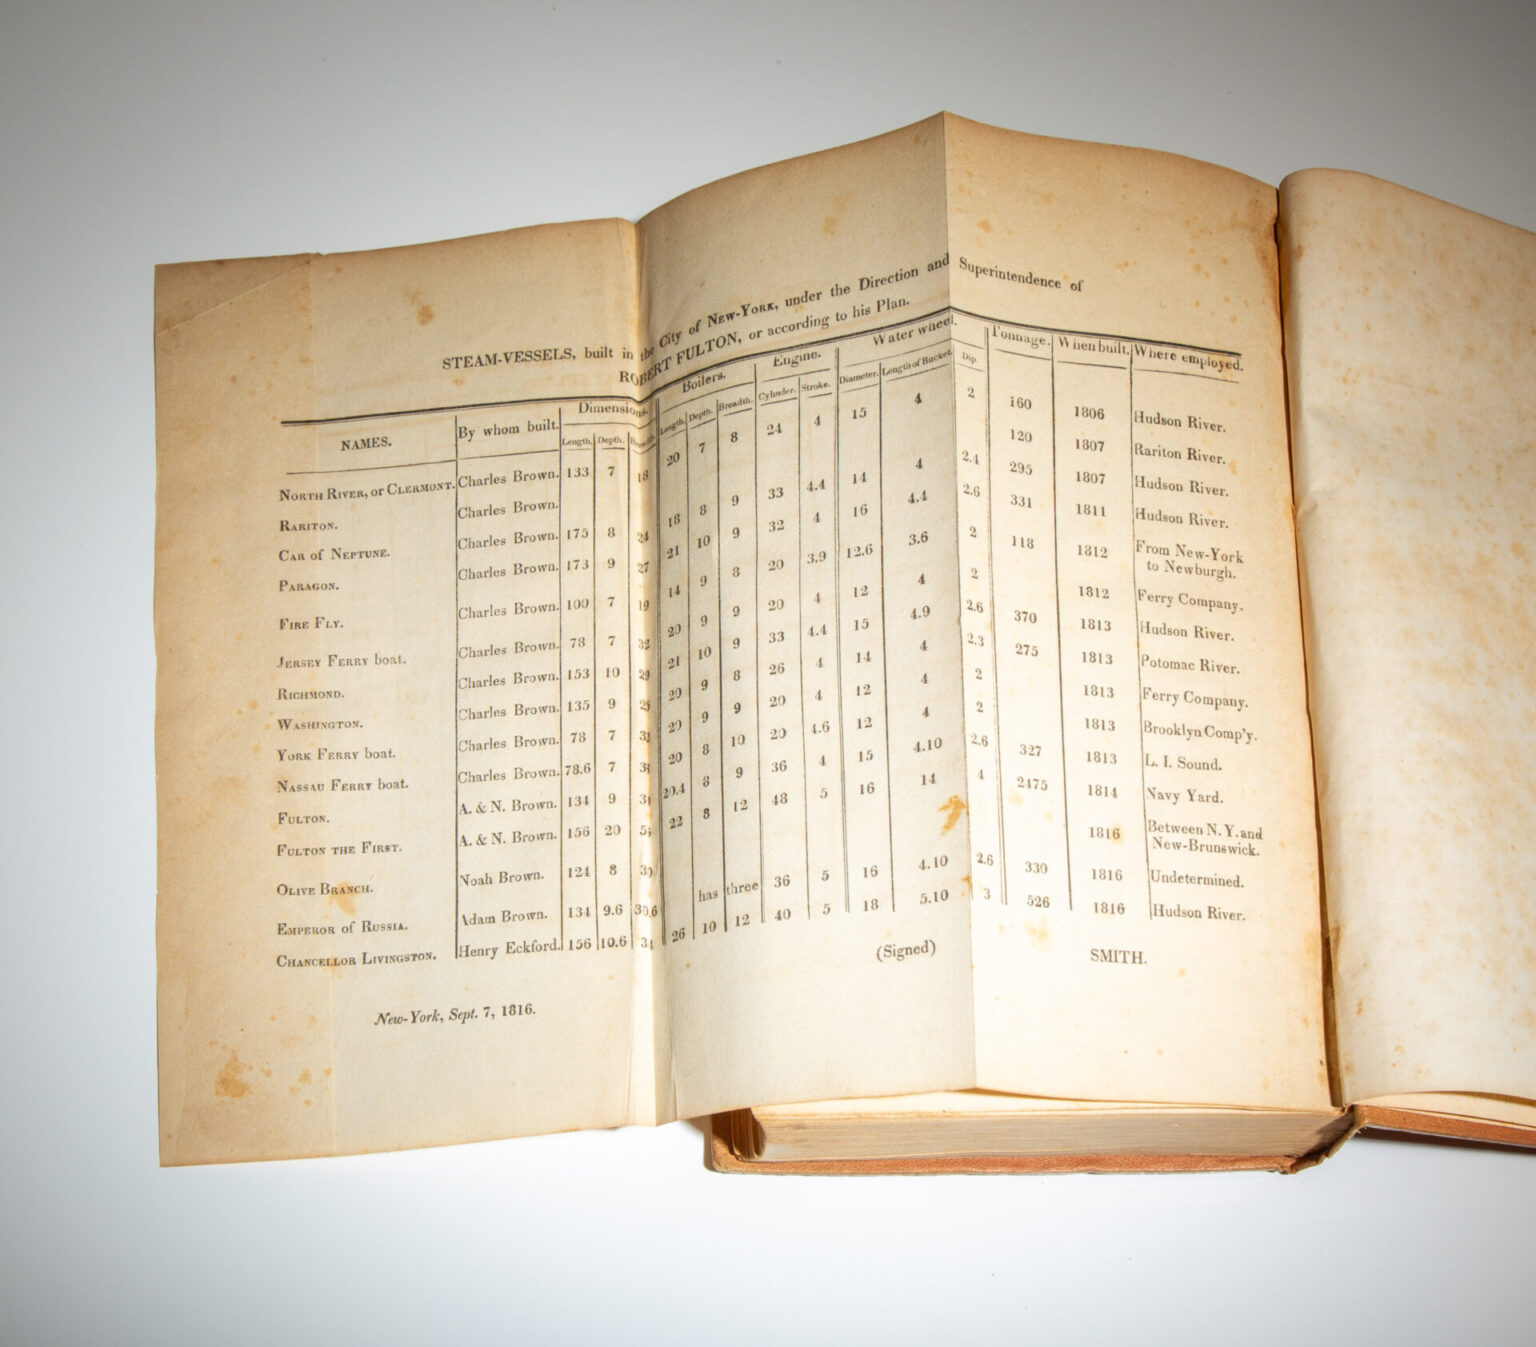 STEAM-VESSELS, built in the City of NEW-YORK, under the Direction and Superintendence of
ROBERT FULTON, or according to his Plan.
NAMES. By whom built. Dimensions. Boilers. Engine. Water wheel. Tonnage. When built. Where employed.
Length. Depth. Length. Depth. Breadth. Cylinder. Stroke. Diameter. Length of Bucket. Dip.
NORTH RIVER, or CLERMONT. Charles Brown. 133 7 18 20 7 8 24 4 15 4 2 160 1806 Hudson River.
RARITON. Charles Brown. 120 1807 Rariton River.
CAR of NEPTUNE. Charles Brown. 175 8 24 18 8 9 33 4.4 14 4 2.4 295 1807 Hudson River.
PARAGON. Charles Brown. 173 9 27 21 10 9 32 4 16 4.4 2.6 331 1811 Hudson River.
FIRE FLY. Charles Brown. 100 7 19 14 9 8 20 3.9 12.6 3.6 2 118 1812 From New-York
to Newburgh.
JERSEY FERRY boat. Charles Brown. 78 7 32 20 9 9 20 4 12 4 2 1812 Ferry Company.
RICHMOND. Charles Brown. 153 10 29 21 10 9 33 4.4 15 4.9 2.6 370 1813 Hudson River.
WASHINGTON. Charles Brown. 135 9 25 20 9 8 26 4 14 4 2.3 275 1813 Potomac River.
YORK FERRY boat. Charles Brown. 78 7 20 9 9 20 4 12 4 2 1813 Ferry Company.
NASSAU FERRY boat. Charles Brown. 78.6 7 20 8 10 20 4.6 12 4 2 1813 Brooklyn Comp'y.
FULTON. A. & N. Brown. 134 9 20.4 8 9 36 4 15 4.10 2.6 327 1813 L. I. Sound.
FULTON THE FIRST. A. & N. Brown. 156 20 22 8 12 48 5 16 14 4 2475 1814 Navy Yard.
OLIVE BRANCH. Noah Brown. 124 8 1816 Between N. Y. and
New-Brunswick.
EMPEROR of RUSSIA. Adam Brown. 134 9.6 30.6 has three 36 5 16 4.10 2.6 330 1816 Undetermined.
CHANCELLOR LIVINGSTON. Henry Eckford. 156 10.6 26 10 12 40 5 18 5.10 3 526 1816 Hudson River.
(Signed) SMITH.
New-York, Sept. 7, 1816.